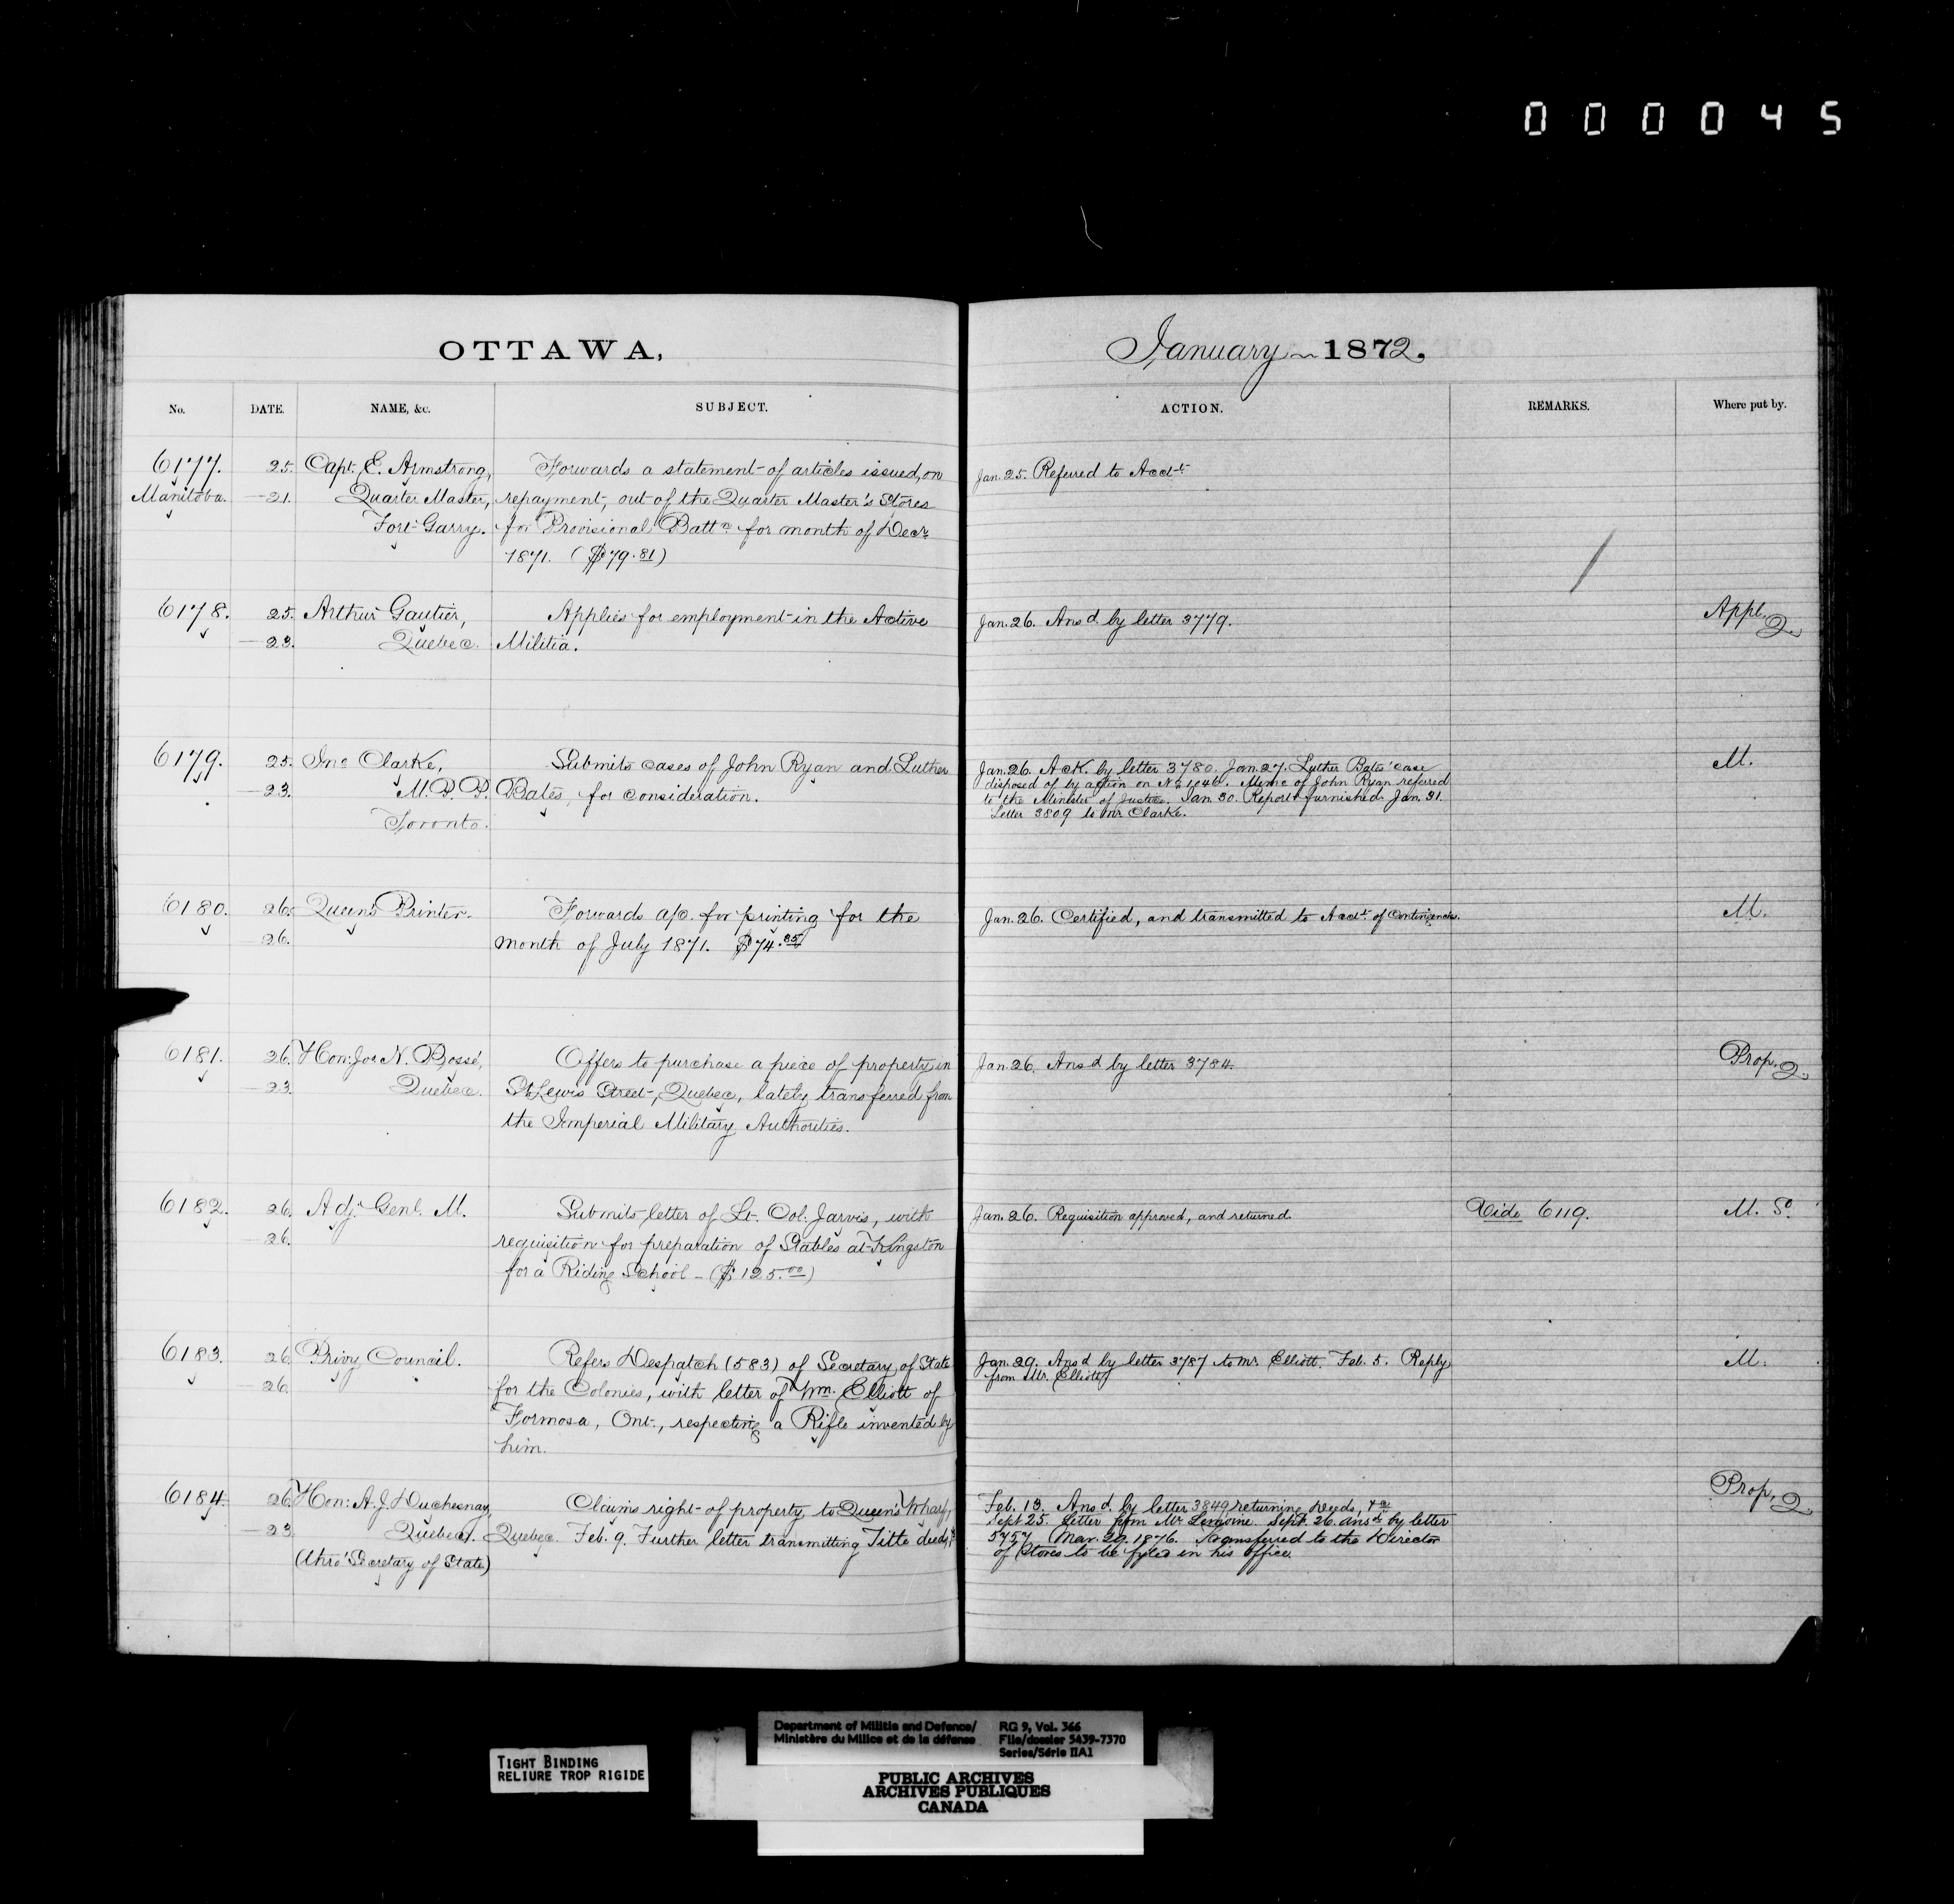 000045
OTTAWA,
January 1872.
No. DATE. NAME, &c. SUBJECT.
ACTION. REMARKS. Where put by.
6177. 25. Capt. E. Armstrong, Forwards a statement of articles issued, on
Manitoba. —21. Quarter Master, repayment, out of the Quarter Master's Stores
Fort Garry. for Provisional Battn for month of Decr
1871. ($79.81)
Jan. 25. Referred to Acct.
6178. 25. Arthur Gautier, Applies for employment in the Active
—23. Quebec. Militia.
Jan. 26. Ansd by letter 3779.
Appl. Q.
6179. 25. Jno Clarke, Submits cases of John Ryan and Luther
—23. M.P.P. Bates, for consideration.
Toronto.
Jan. 26. Ack. by letter 3780. Jan. 27. Luther Bates' case
disposed of by action on No Memo of John Ryan referred
to the Minister of Justice. Jan. 30. Report furnished. Jan. 31.
Letter 3809 to Mr Clarke.
M.
6180. 26. Queen's Printer. Forwards a/c. for printing for the
26. month of July 1871. $74.85
Jan. 26. Certified, and transmitted to Acct. of Contingencies.
M.
6181. 26. Hon: Jos N. Bossé, Offers to purchase a piece of property in
—23. Quebec. St. Lewis Street, Quebec, lately transferred from
the Imperial Military Authorities.
Jan. 26. Ansd by letter 3784.
Prop. Q.
6182. 26. Adj. Genl. M. Submits letter of Lt. Col. Jarvis, with
—26. requisition for preparation of Stables at Kingston
for a Riding School – ($125.00)
Jan. 26. Requisition approved, and returned.
Vide 6119.
M. So
6183. 26. Privy Council. Refers Despatch (583) of Secretary of State
—26. for the Colonies, with letter of Wm. Elliott of
Formosa, Ont., respecting a Rifle invented by
him.
Jan. 29. Ansd by letter 3787 to Mr. Elliott. Feb. 5. Reply
from Mr. Elliott
M.
6184. 26. Hon: A. J. Duchesnay, Claims right of property to Queen's Wharf,
—23. Quebec. Quebec. Feb. 9. Further letter transmitting Title deeds,
(thro' Secretary of State)
Feb. 13. Ansd by letter 3849 returning Deeds, &c
Sept 25. Letter from Mr Lemoine. Sept. 26. ansd by letter
5757 Mar. 29. 1876. Transferred to the Director
of Stores to be fyled in his office.
Prop. Q.
TIGHT BINDING
RELIURE TROP RIGIDE
Department of Militia and Defence/
Ministère du Milice et de la défense
RG 9, Vol. 366
File/dossier 5439-7370
Series/Série IIA1
PUBLIC ARCHIVES
ARCHIVES PUBLIQUES
CANADA